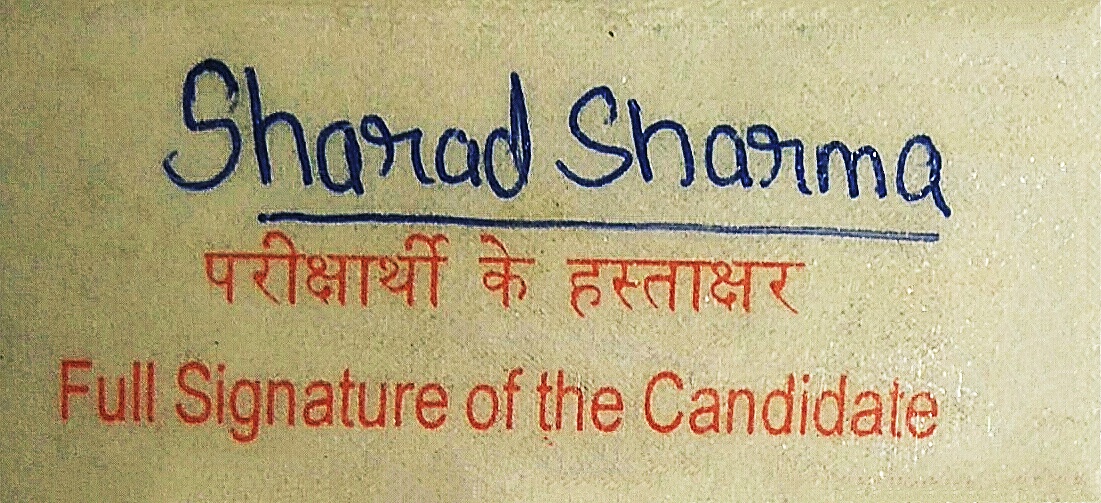 Sharad Sharma
परीक्षार्थी के हस्ताक्षर
Full Signature of the Candidate